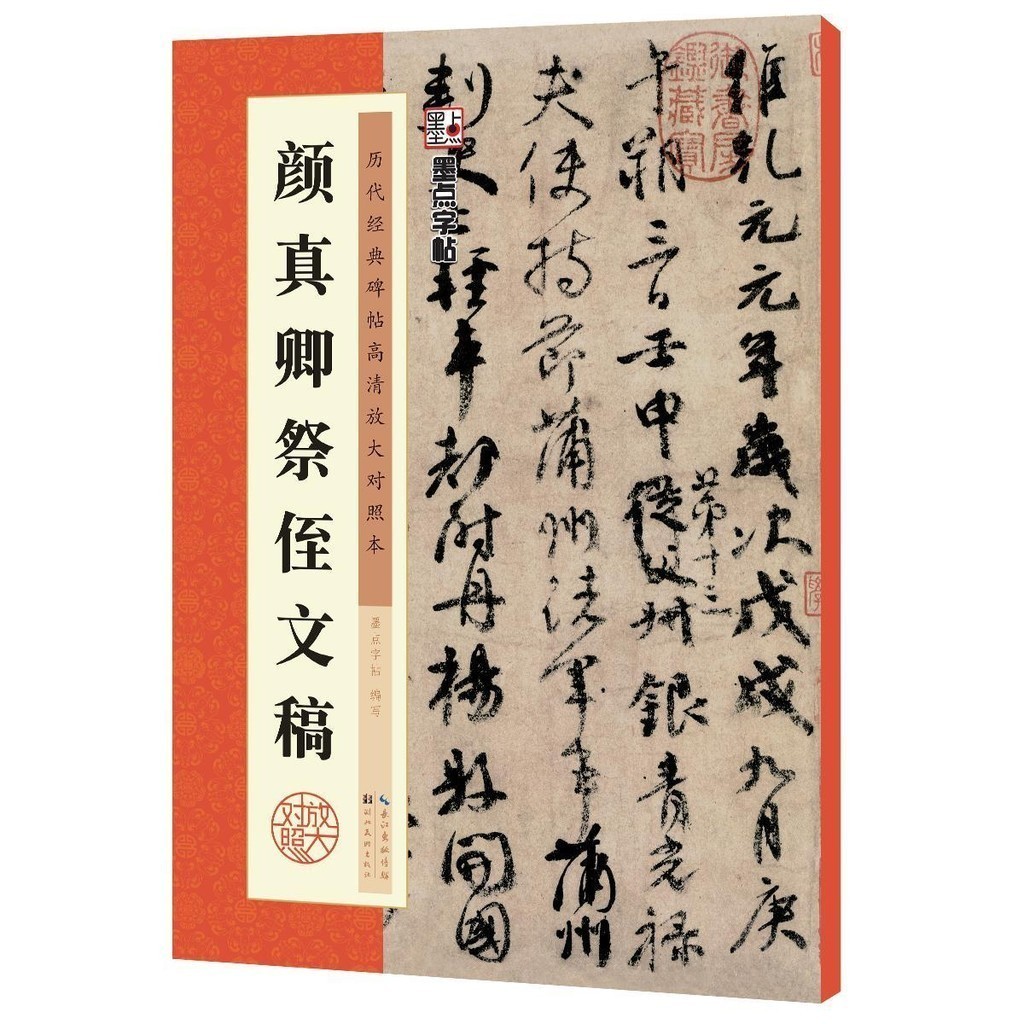 颜真卿祭侄文稿
历代经典碑帖高清放大对照本
墨点字帖 编写
放大对照
长江出版传媒
湖北美术出版社
墨点
墨点字帖
御书房鉴藏宝
维乾元元年岁次戊戌九月庚
午朔三日壬申
第十三
从父
银青光禄
夫使持节蒲州诸军事蒲州
刺史上轻车都
尉丹杨县开国